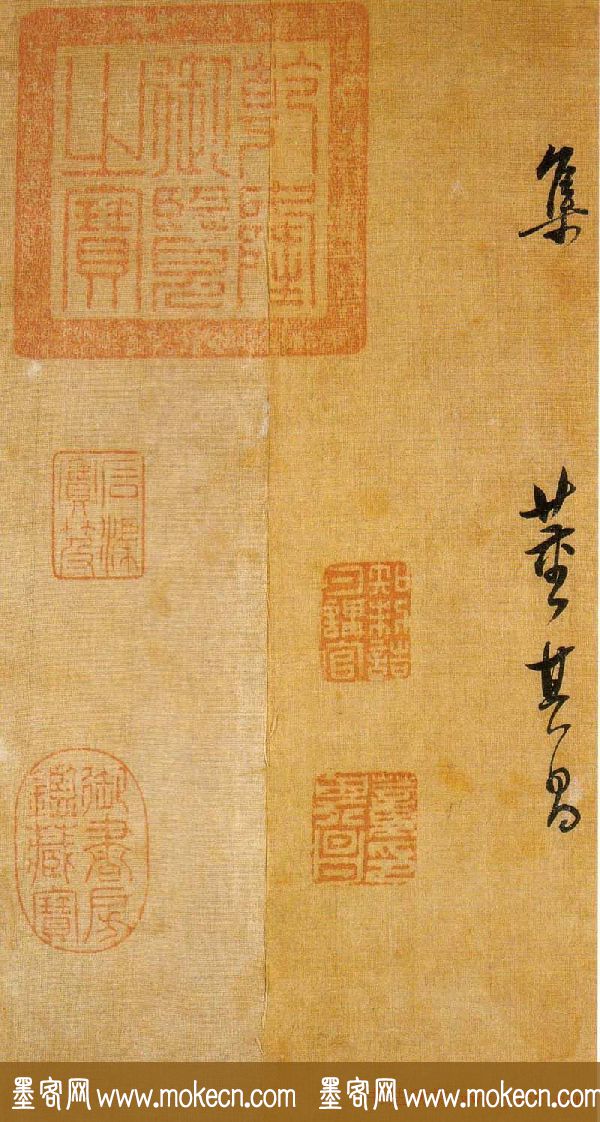 集 董其昌
知制誥日講官
乾隆御覽之寶
石渠寶笈
御書房鑑藏寶
墨客网 www.mokecn.com 墨客网 www.mokecn.com